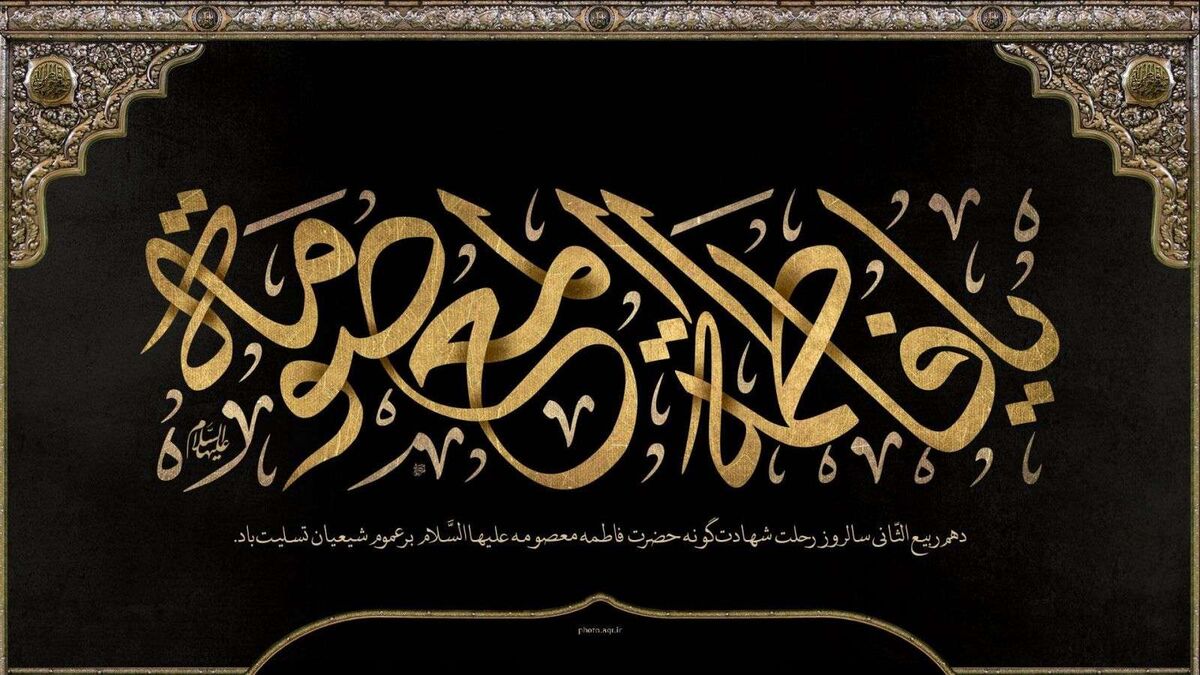 یا فاطمة معصومة
علیها السلام
دهم ربیع الثّانی سالروز رحلت شهادت‌گونه حضرت فاطمه معصومه علیها السَّلام بر عموم شیعیان تسلیت باد.
photo.aqr.ir